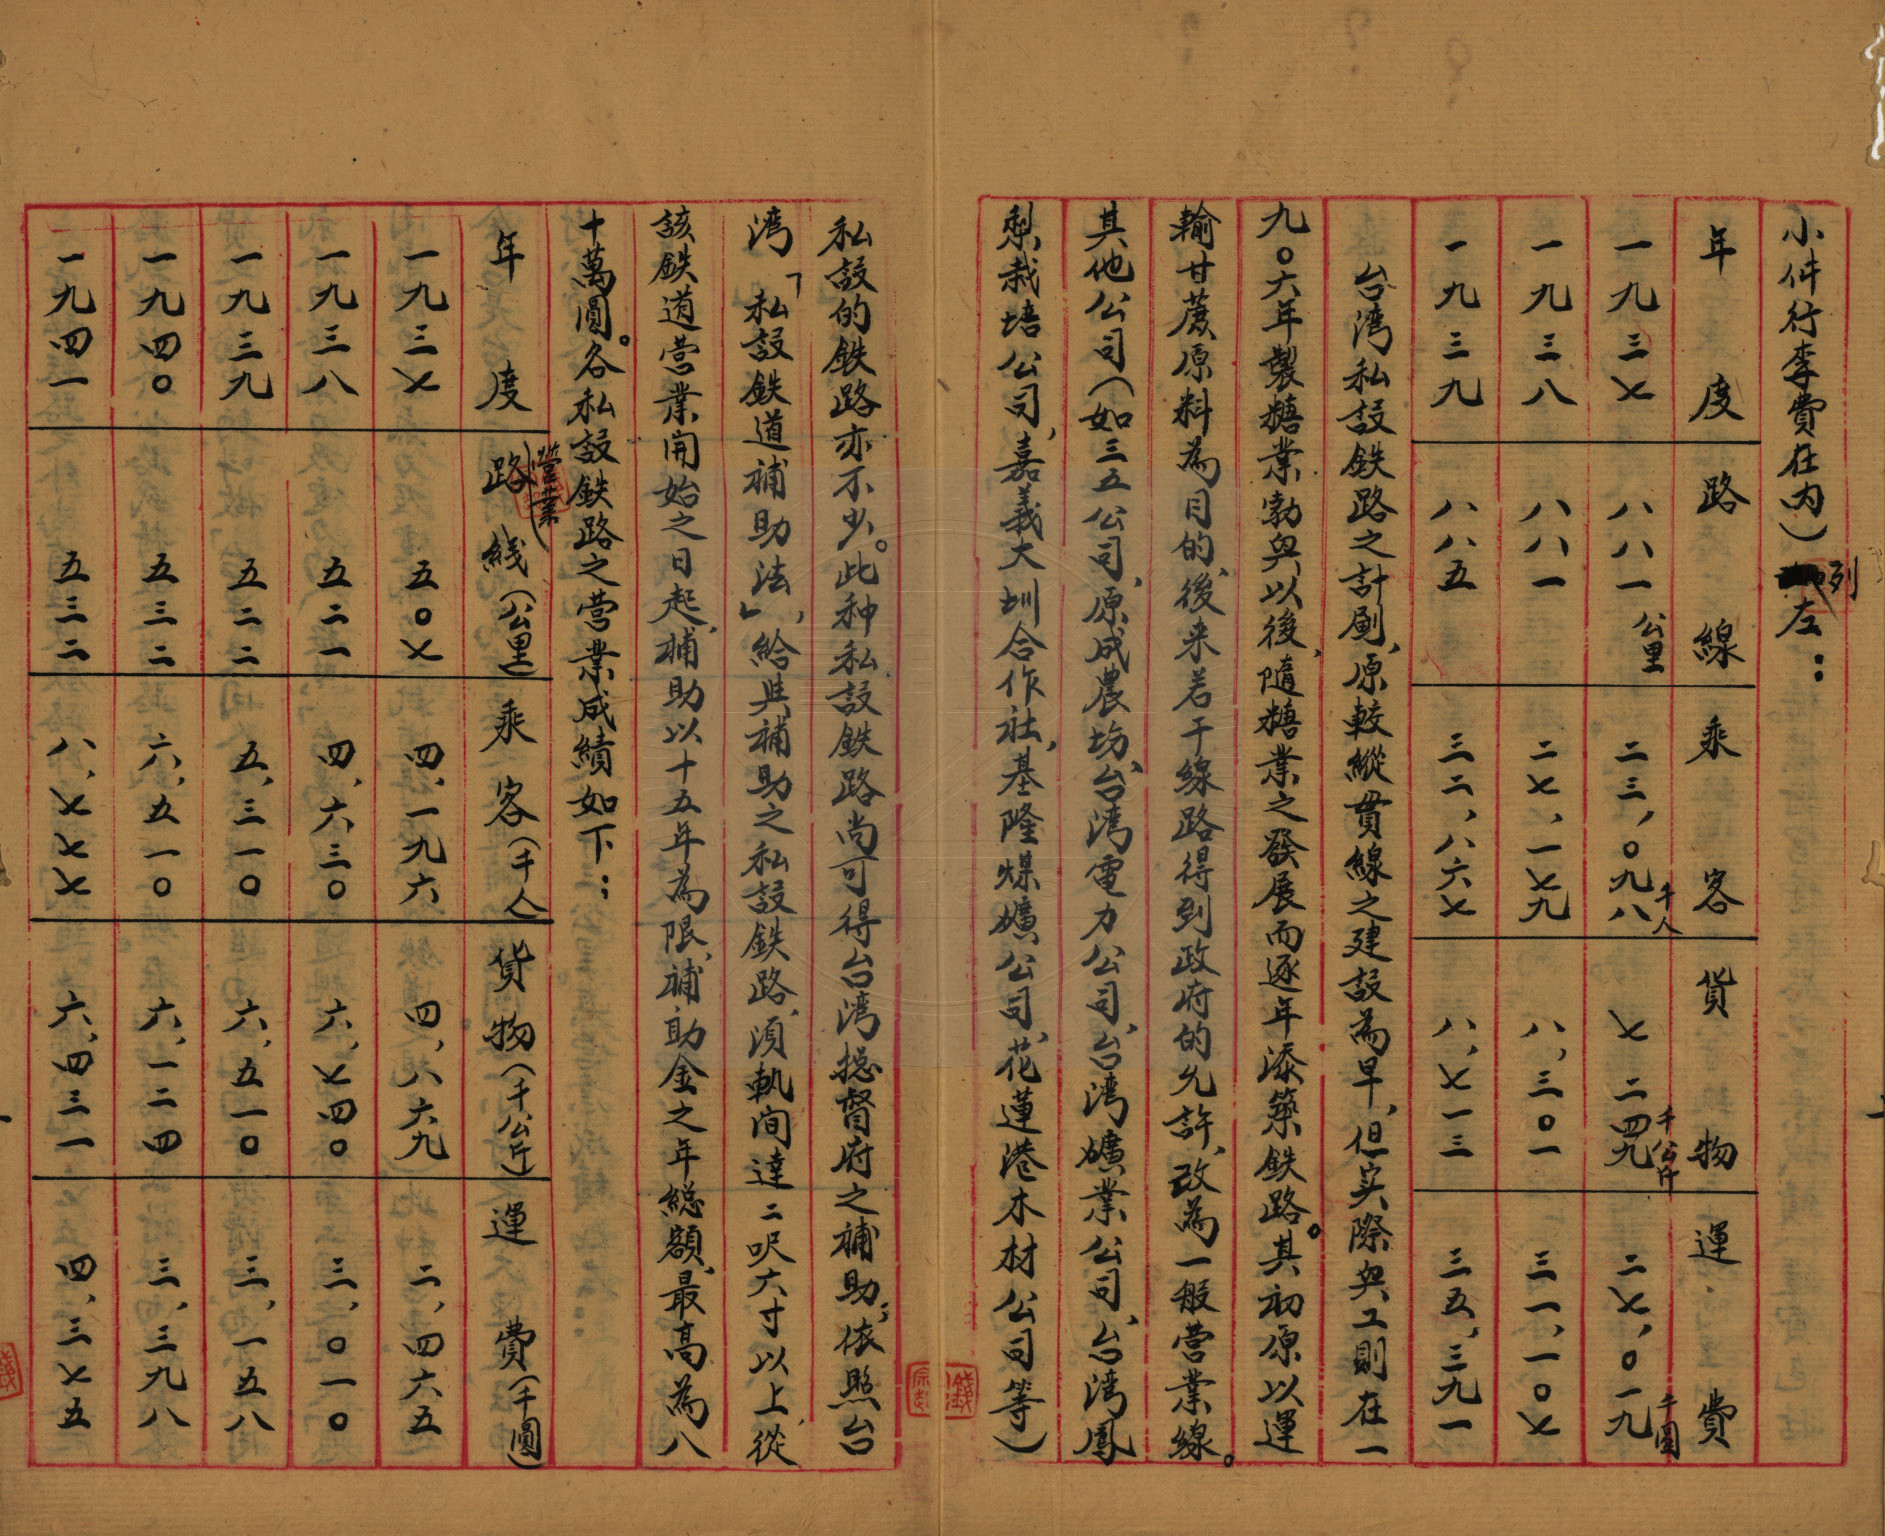 小件行李費在内）列左：
年度　路線　乘客　貨物　運費
一九三七　八八一公里　二三,〇九八千人　七二四九千公斤　二七,〇一九千圓
一九三八　八八一　二七,一七九　八,三〇一　三一,一〇七
一九三九　八八五　三二,八六七　八,七一三　三五,三九一
台湾私設鉄路之計劃,原較縱貫線之建設為早,但实際與工則在一
九〇六年製糖業勃與以後,隨糖業之發展而逐年添築鉄路。其初原以運
輸甘蔗原料為目的,後来若干線路得到政府的允許,改為一般营業線。
其他公司（如三五公司,原成農場,台湾電力公司,台湾礦業公司,台湾鳳
梨栽培公司,嘉義大圳合作社,基隆煤礦公司,花蓮港木材公司等）
私設的鉄路亦不少。此种私設鉄路尚可得台湾摠督府之補助;依照台
湾「私設鉄道補助法」,給與補助之私設鉄路,須軌间達二呎六寸以上,從
該鉄道营業開始之日起,補助以十五年為限,補助金之年総額,最高為八
十萬圓。各私設鉄路之营業成績如下：
年度　（營業）路綫（公里）　乘客（千人）　貨物（千公斤）　運費（千圓）
一九三七　五〇七　四,一九六　四,八六九　二,四六五
一九三八　五二一　四,六三〇　六,七四〇　三,〇一〇
一九三九　五二二　五,三一〇　六,五一〇　三,一五八
一九四〇　五三二　六,五一〇　六,一二四　三,三九八
一九四一　五三二　八,七七七　六,四三一　四,三七五